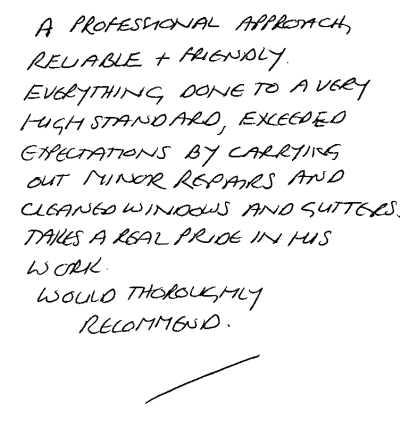 A PROFESSIONAL APPROACH,
RELIABLE + FRIENDLY.
EVERYTHING DONE TO A VERY
HIGH STANDARD, EXCEEDED
EXPECTATIONS BY CARRYING
OUT MINOR REPAIRS AND
CLEANED WINDOWS AND GUTTERS.
TAKES A REAL PRIDE IN HIS
WORK.
WOULD THOROUGHLY
RECOMMEND.